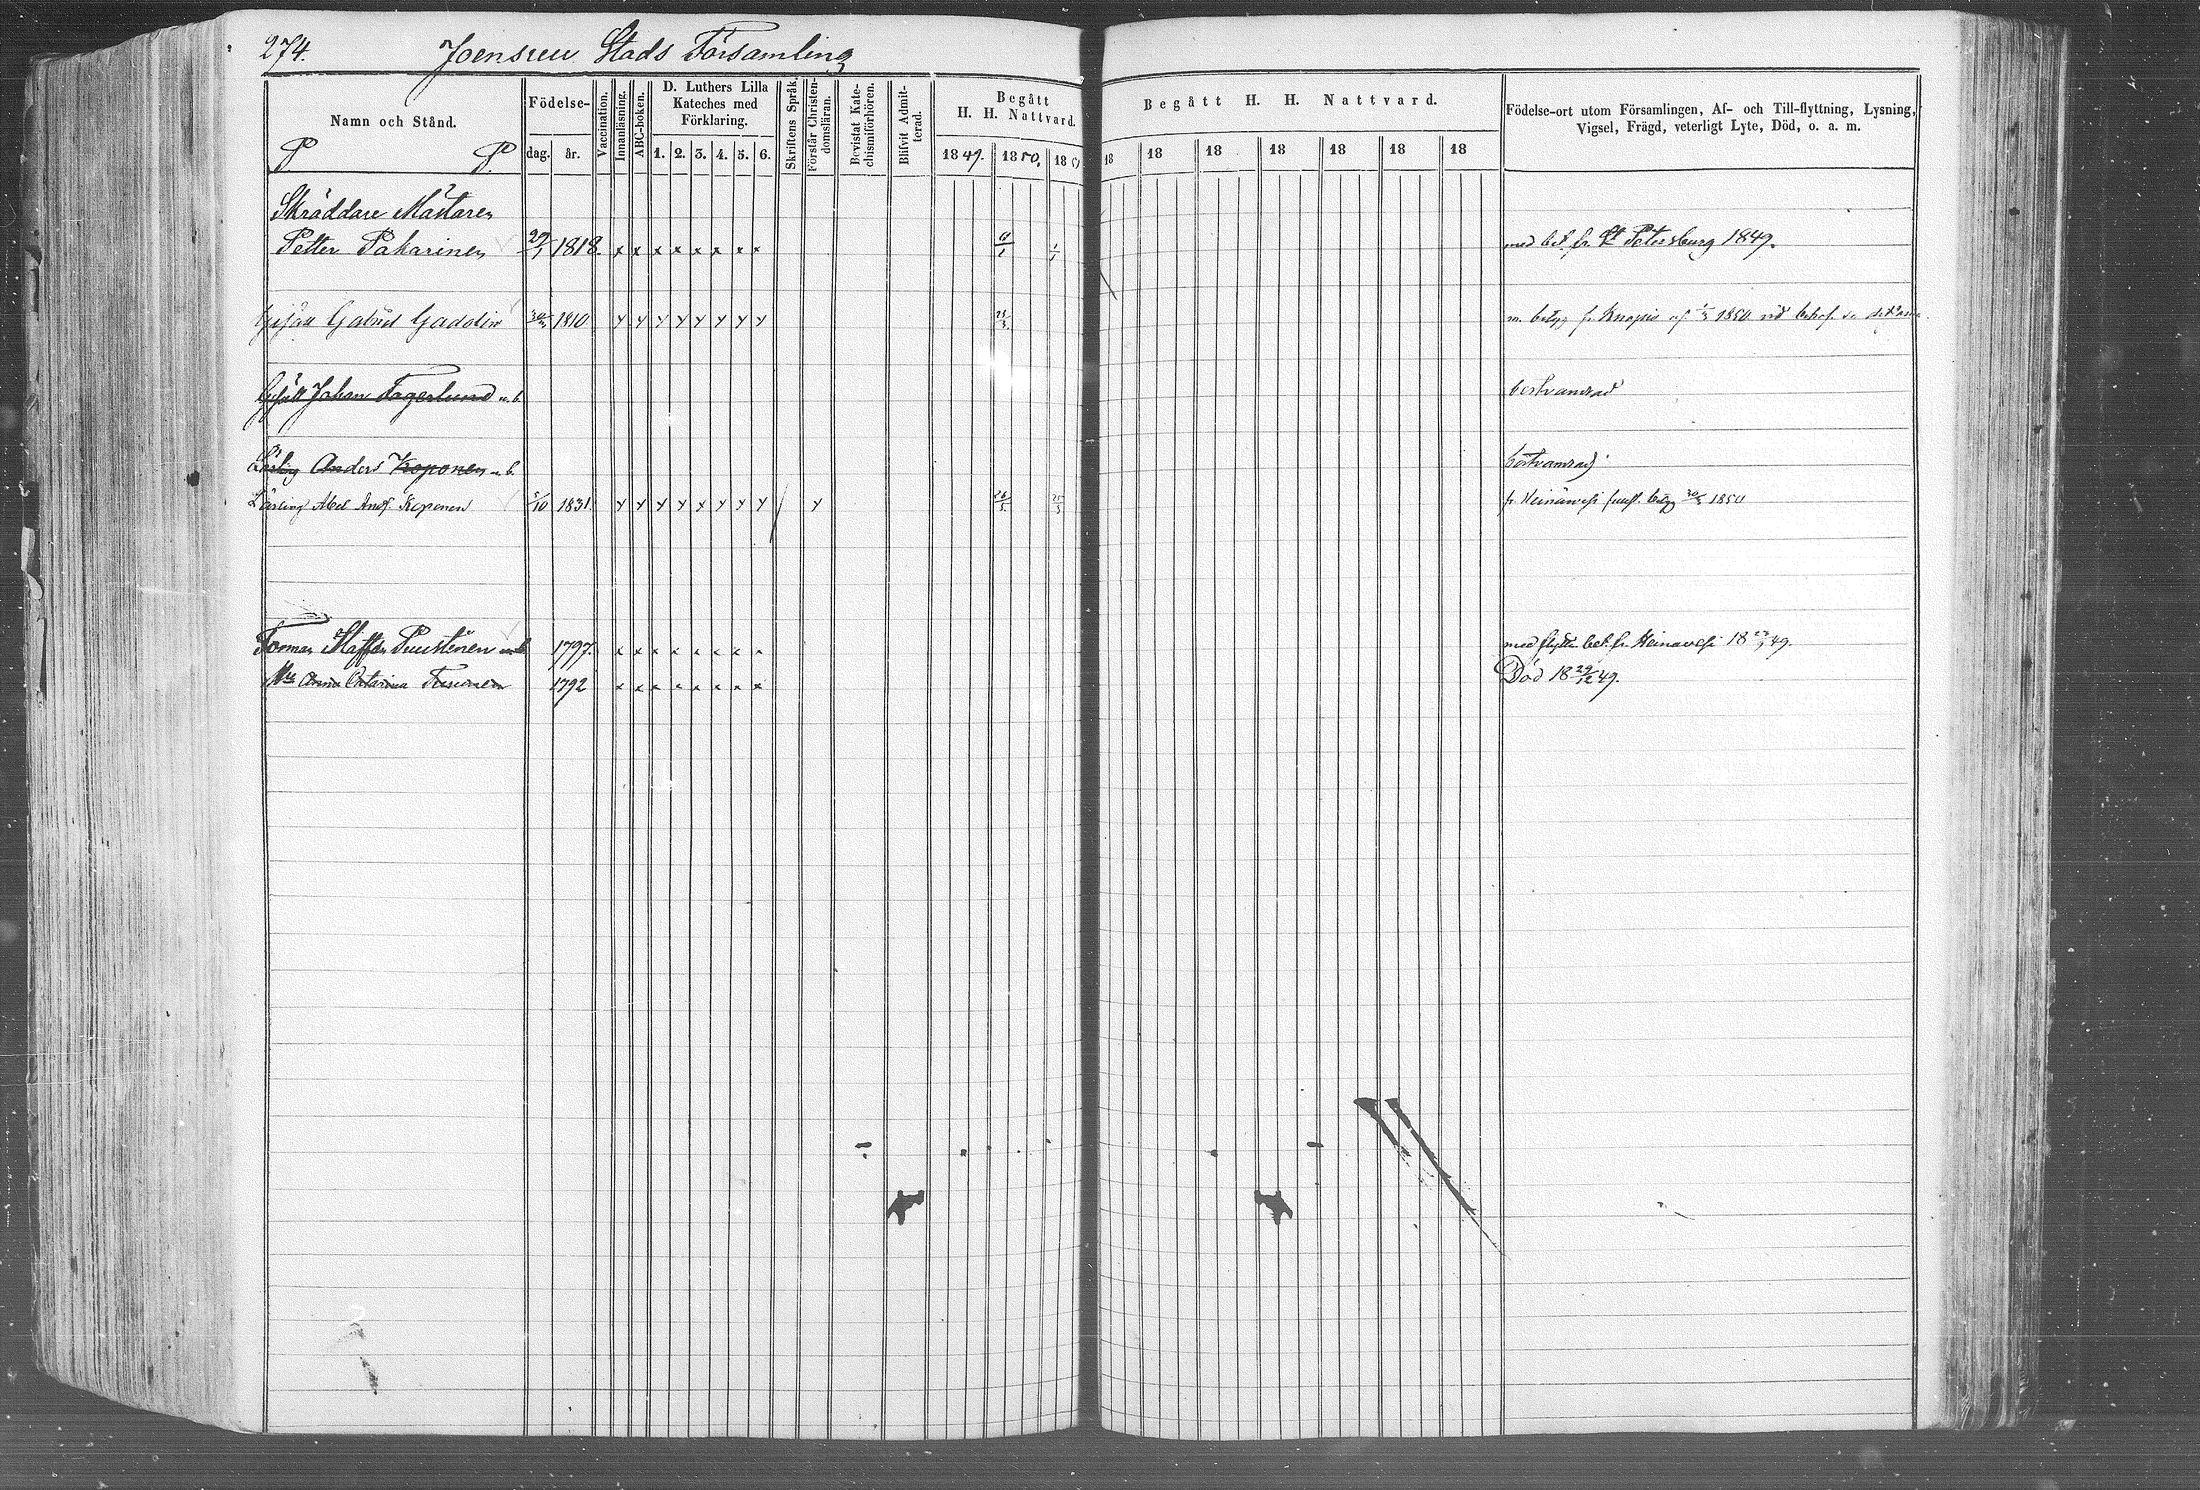 274. Joensuu Stads Församling
Namn och Stånd.
P. P.
Födelse-
dag. år.
Vaccination.
Innanläsning.
ABC-boken.
D. Luthers Lilla
Kateches med
Förklaring.
1. 2. 3. 4. 5. 6.
Skriftens Språk.
Förstår Christen-
domsläran.
Bevistat Kate-
chismiförhören.
Blifvit Admit-
terad.
Begått
H. H. Nattvard.
1849. 1850. 185
Begått H. H. Nattvard.
18 18 18 18 18 18 18
Födelse-ort utom Församlingen, Af- och Till-flyttning, Lysning,
Vigsel, Frägd, veterligt Lyte, Död, o. a. m.
Skräddare Mästaren
Petter Pakarinen 29/1 1818. x x x x x x x x med bet. fr. St Petersburg 1849.
Gesäll Gabriel Gaddlin 1810 y y y y y y y y 1850
Gesäll Johan Fagerlund u. b. bortvandrad
Lärling Anders Koponen u. b. bortvandrad
Lärling Abel And. Koponen 1831. y y y y y y y y y 26/5 25/5 fr. Heinävesi 1850
Torman Staffan Puustinen 1797. x x x x x x x x med flyttn. bet. fr. Heinävesi 18 49.
Anna Catarina Turunen 1792 x x x x x x x x Död 18 29/12 49.